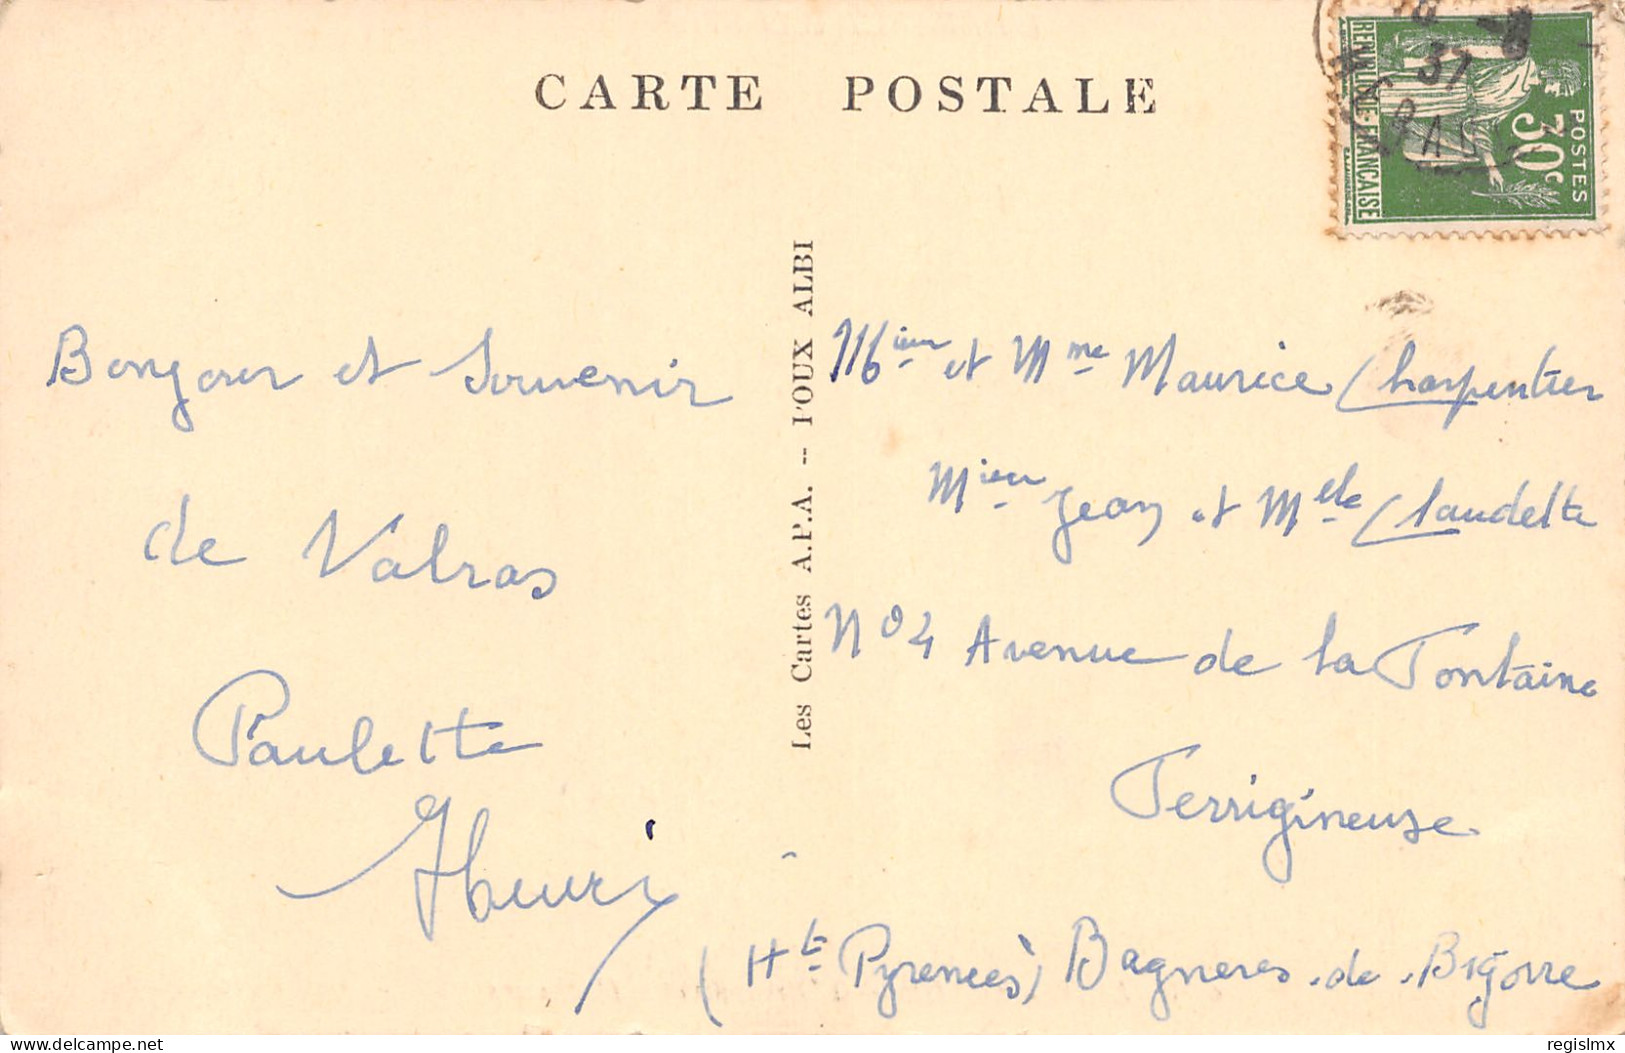 CARTE POSTALE
REPUBLIQUE FRANÇAISE
POSTES
30c
37
Bonjour et Souvenir
de Valras
Paulette
Henri
Les Cartes A.P.A. -- POUX ALBI
Mieur et Mme Maurice Charpentier
Mieur Jean et Melle Claudette
No 4 Avenue de la Fontaine
Ferrigineuse
(Hte Pyrenées) Bagneres-de-Bigorre
delcampe.net
regislmx